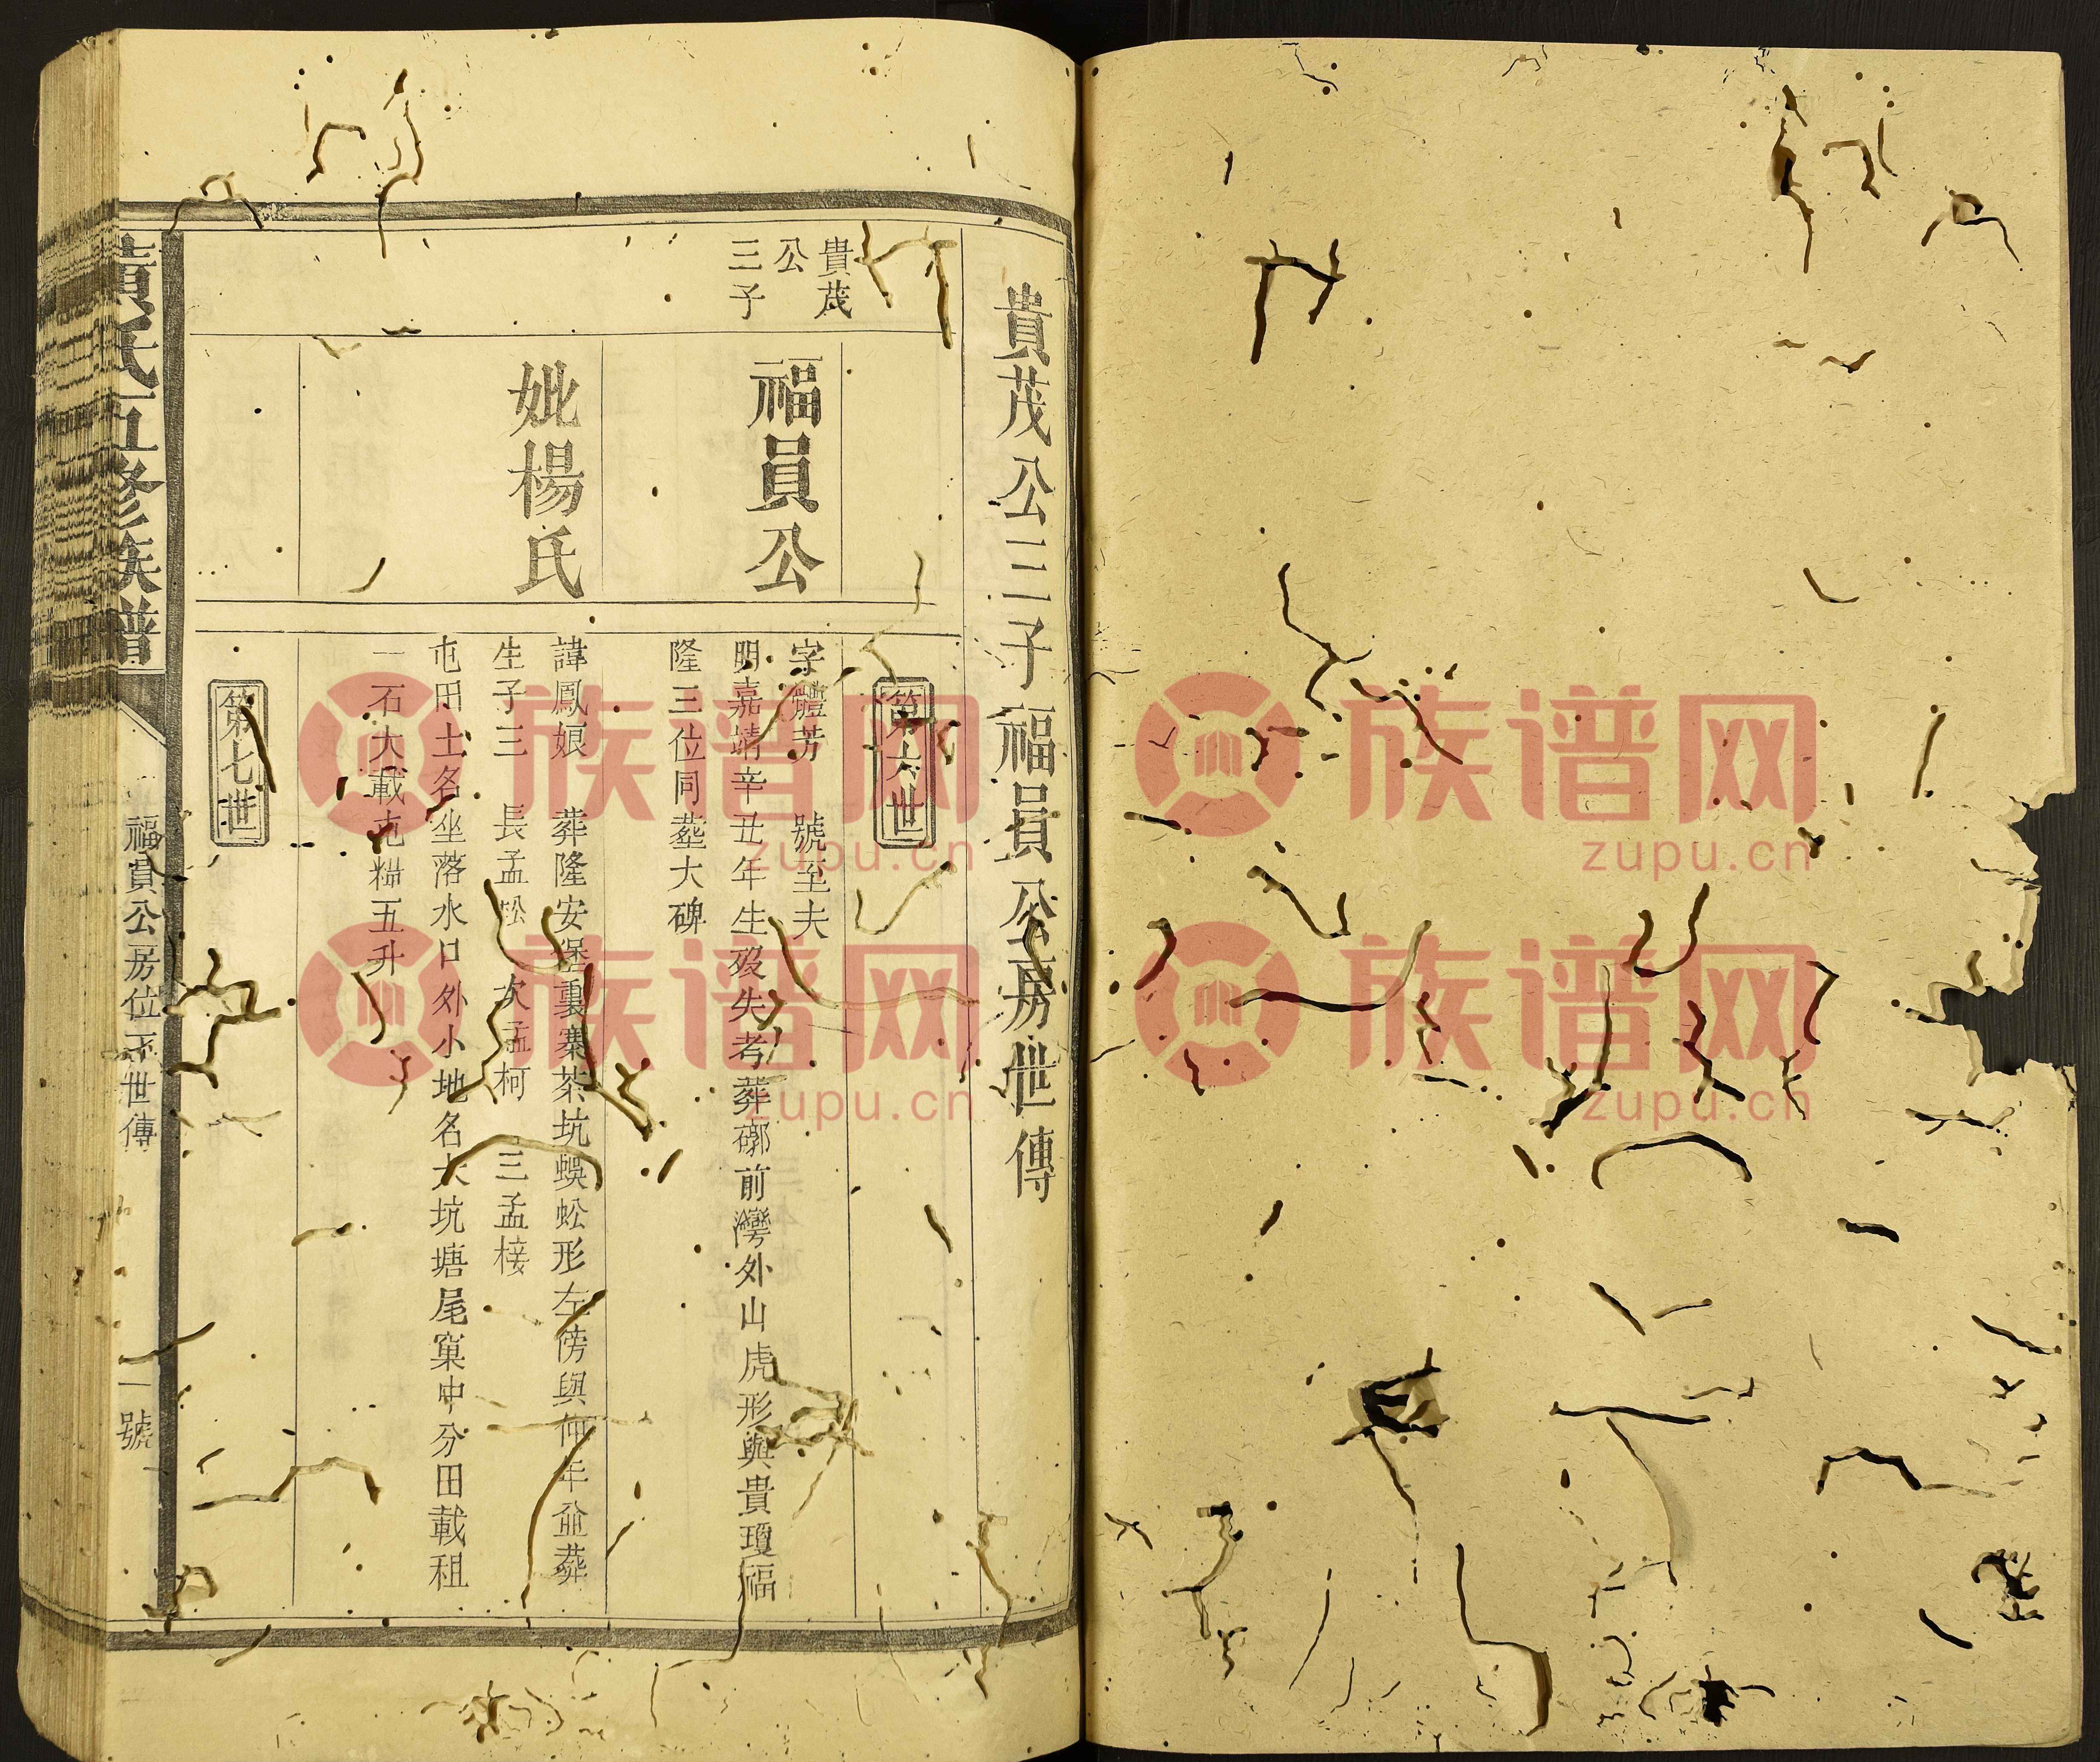 貴茂公三子福員公房世傳
貴茂
公
三子
第六世
福員公
字軆芳　號至夫
明嘉靖辛丑年生歿失考葬𨛦前灣外山虎形與貴瓊福
隆三位同塟大碑
妣楊氏
諱鳳娘　葬隆安堡裏寨茶坑蜈蚣形左傍與仲年㒰葬
生子三　長孟松　次孟柯　三孟椄
屯田土名坐落水口外小地名大坑塘尾窠中分田載租
一石大載屯糧五升
第七世
氏五修族譜
福員公房位下世傳
一號
族谱网
zupu.cn
族谱网
zupu.cn
族谱网
zupu.cn
族谱网
zupu.cn